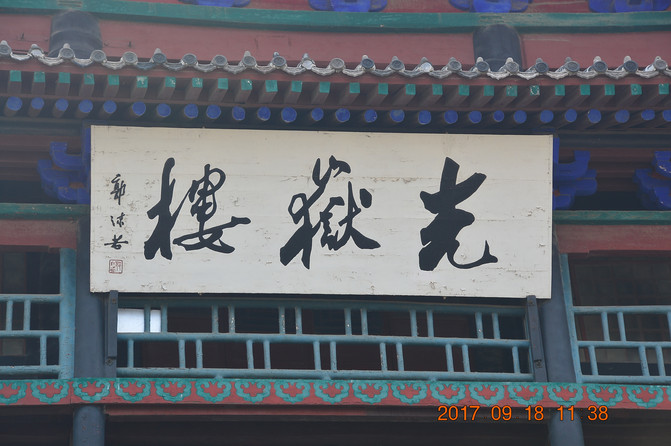 光嶽樓
郭沫若
2017 09 18 11 38